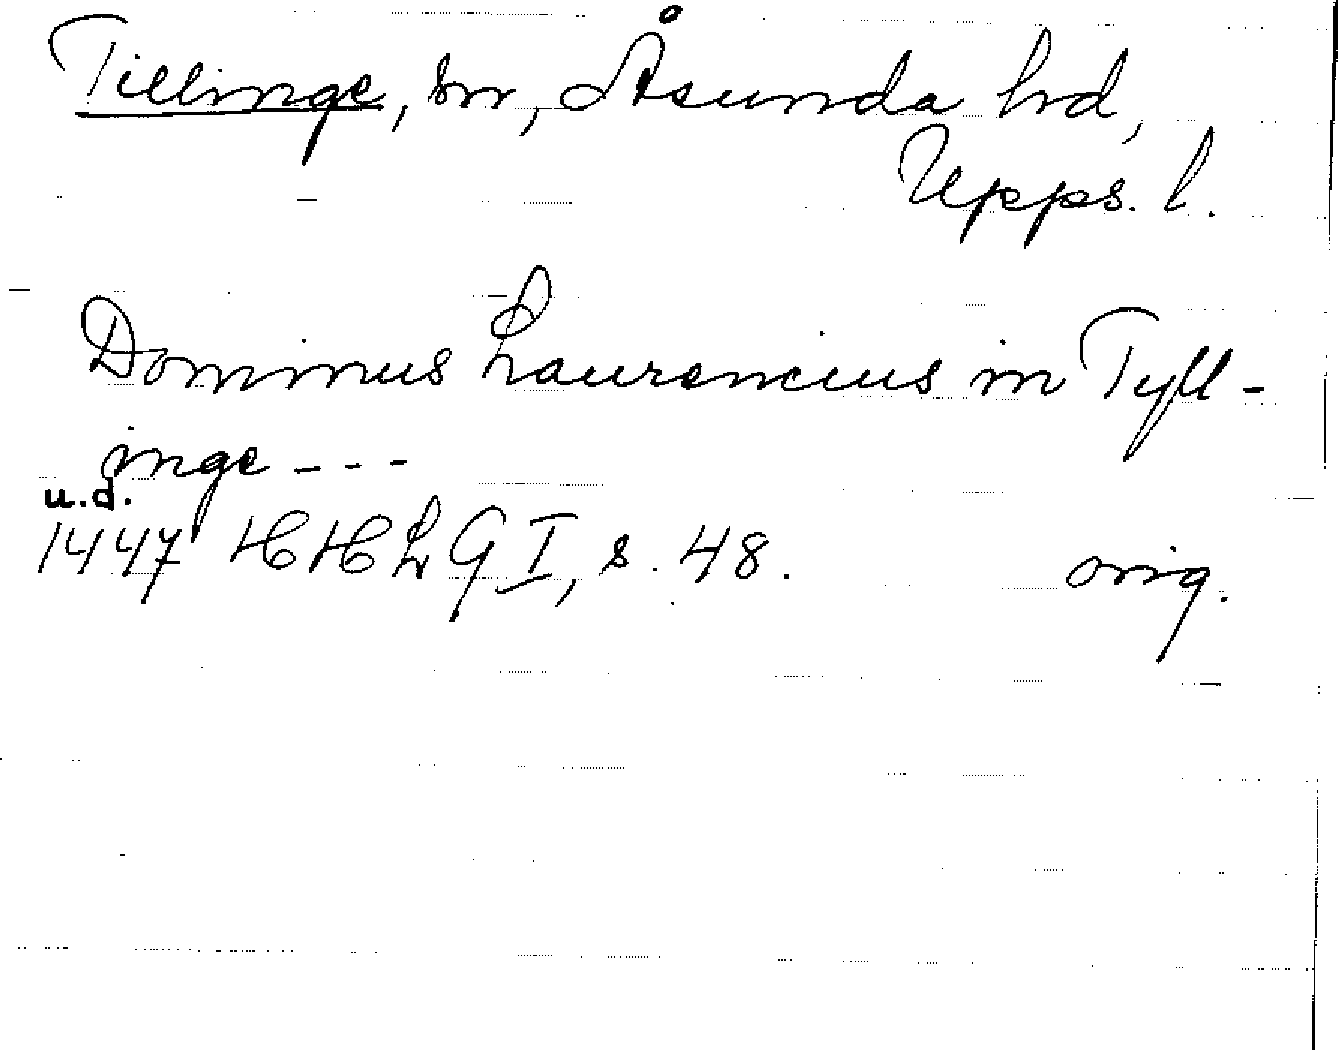 Tillinge, sn, Åsunda hd,
Upps. l.
Dominus Laurencius in Tyll-
inge - - -
u.d.
1447 HHLG I, s. 48. orig.